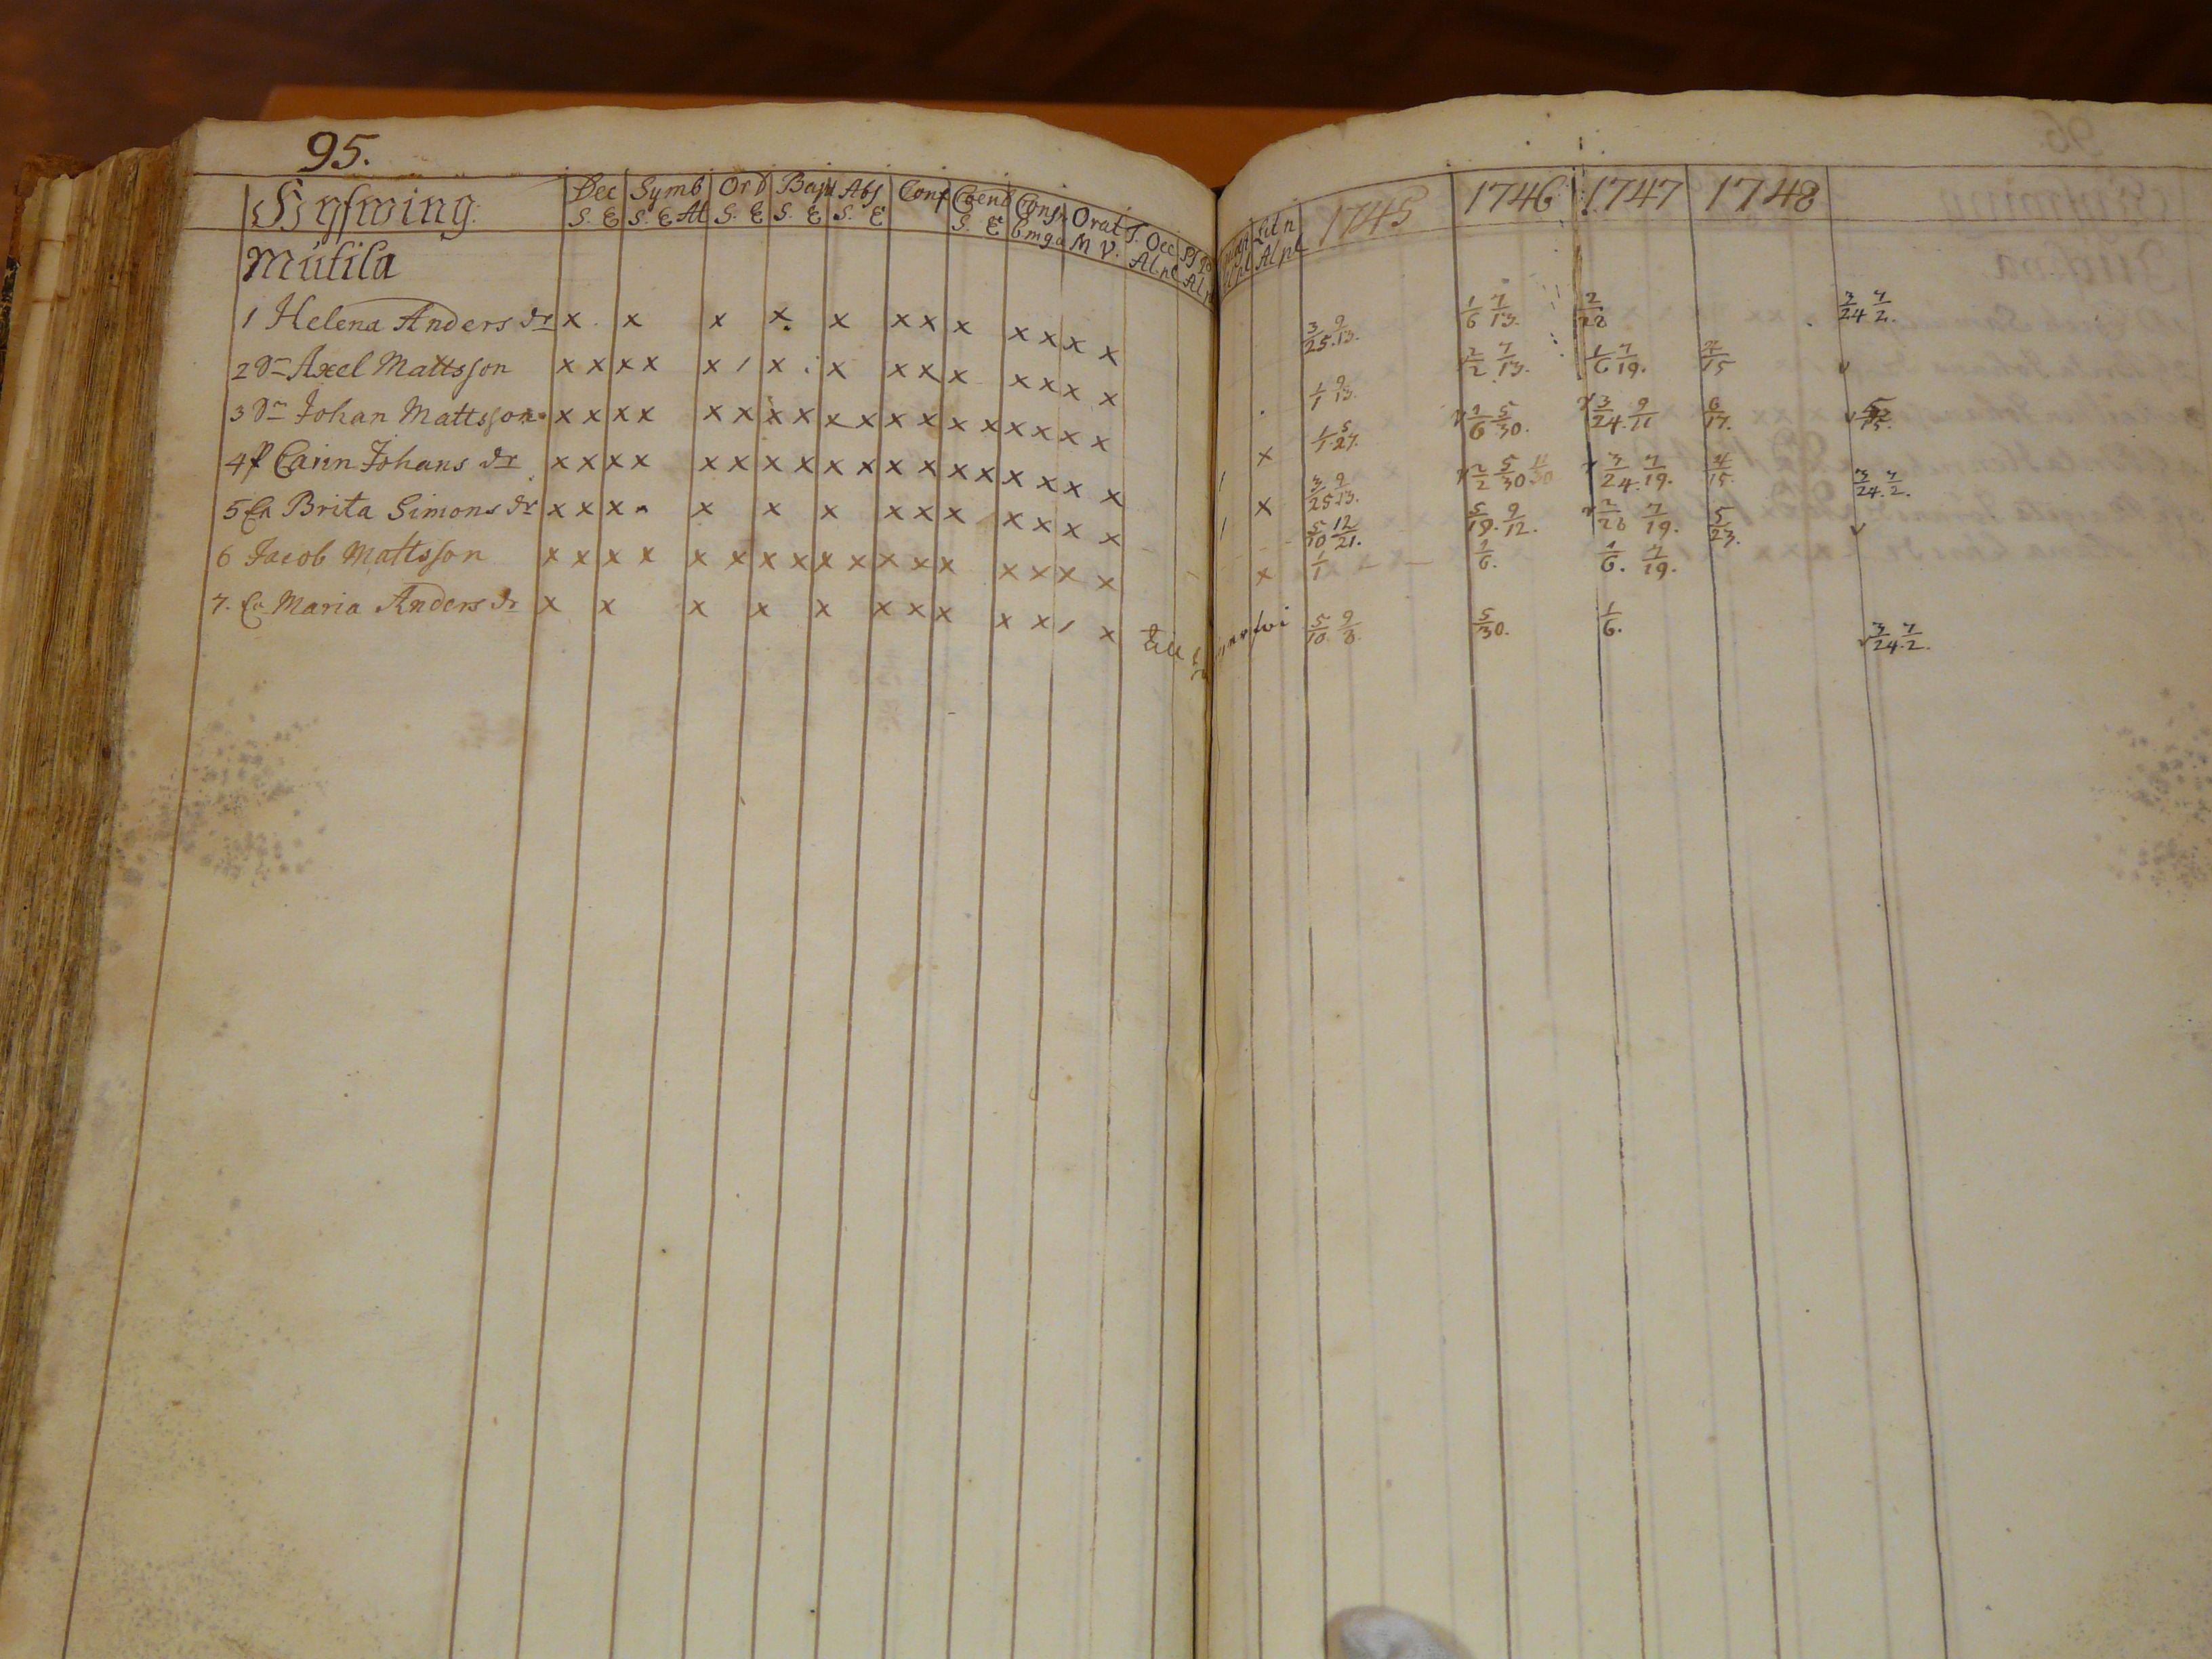 95.
Syfwing. Dec Symb Or D Bapt Abs Conf Coena Consr Orat T. Oec 1745 1746 1747 1748
S. E S. E At S. E S. E S. E S. E M V. Al pl Al pl
Mutila
1 Helena Anders dr x x x x x x x x x x x x 3/25. 9/13. 1/6 7/13. 2/28 3/24 7/2.
2 Dr Axel Mattsson x x x x x / x x x x x x x x x 1/1 9/13. 2/2 7/13. 1/6 7/19. 4/15 v
3 Dr Johan Mattsson x x x x x x x x x x x x x x x x x x x 1/1. 5/27. 1/6 5/30. 3/24. 9/11 6/17.
4 f Carin Johans dr x x x x x x x x x x x x x x x x x x / x 3/25 9/13. 2/2 5/30 3/24. 7/19. 4/15. 3/24. 7/2.
5 Ea Brita Simons dr x x x x x x x x x x x x x / 5/10 12/21. 5/19. 9/12. 2/28 7/19. 5/23. v
6 Jacob Mattsson x x x x x x x x x x x x x x x x x x 1/1 1/6. 1/6. 7/19.
7. Ea Maria Anders dr x x x x x x x x x x / x till 5/10. 9/8. 5/30. 1/6. v 3/24. 7/2.